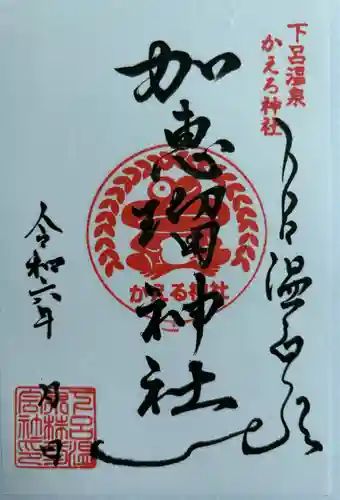 下呂温泉
かえる神社
下呂温泉
加恵瑠神社
かえる神社
令和六年
月 日